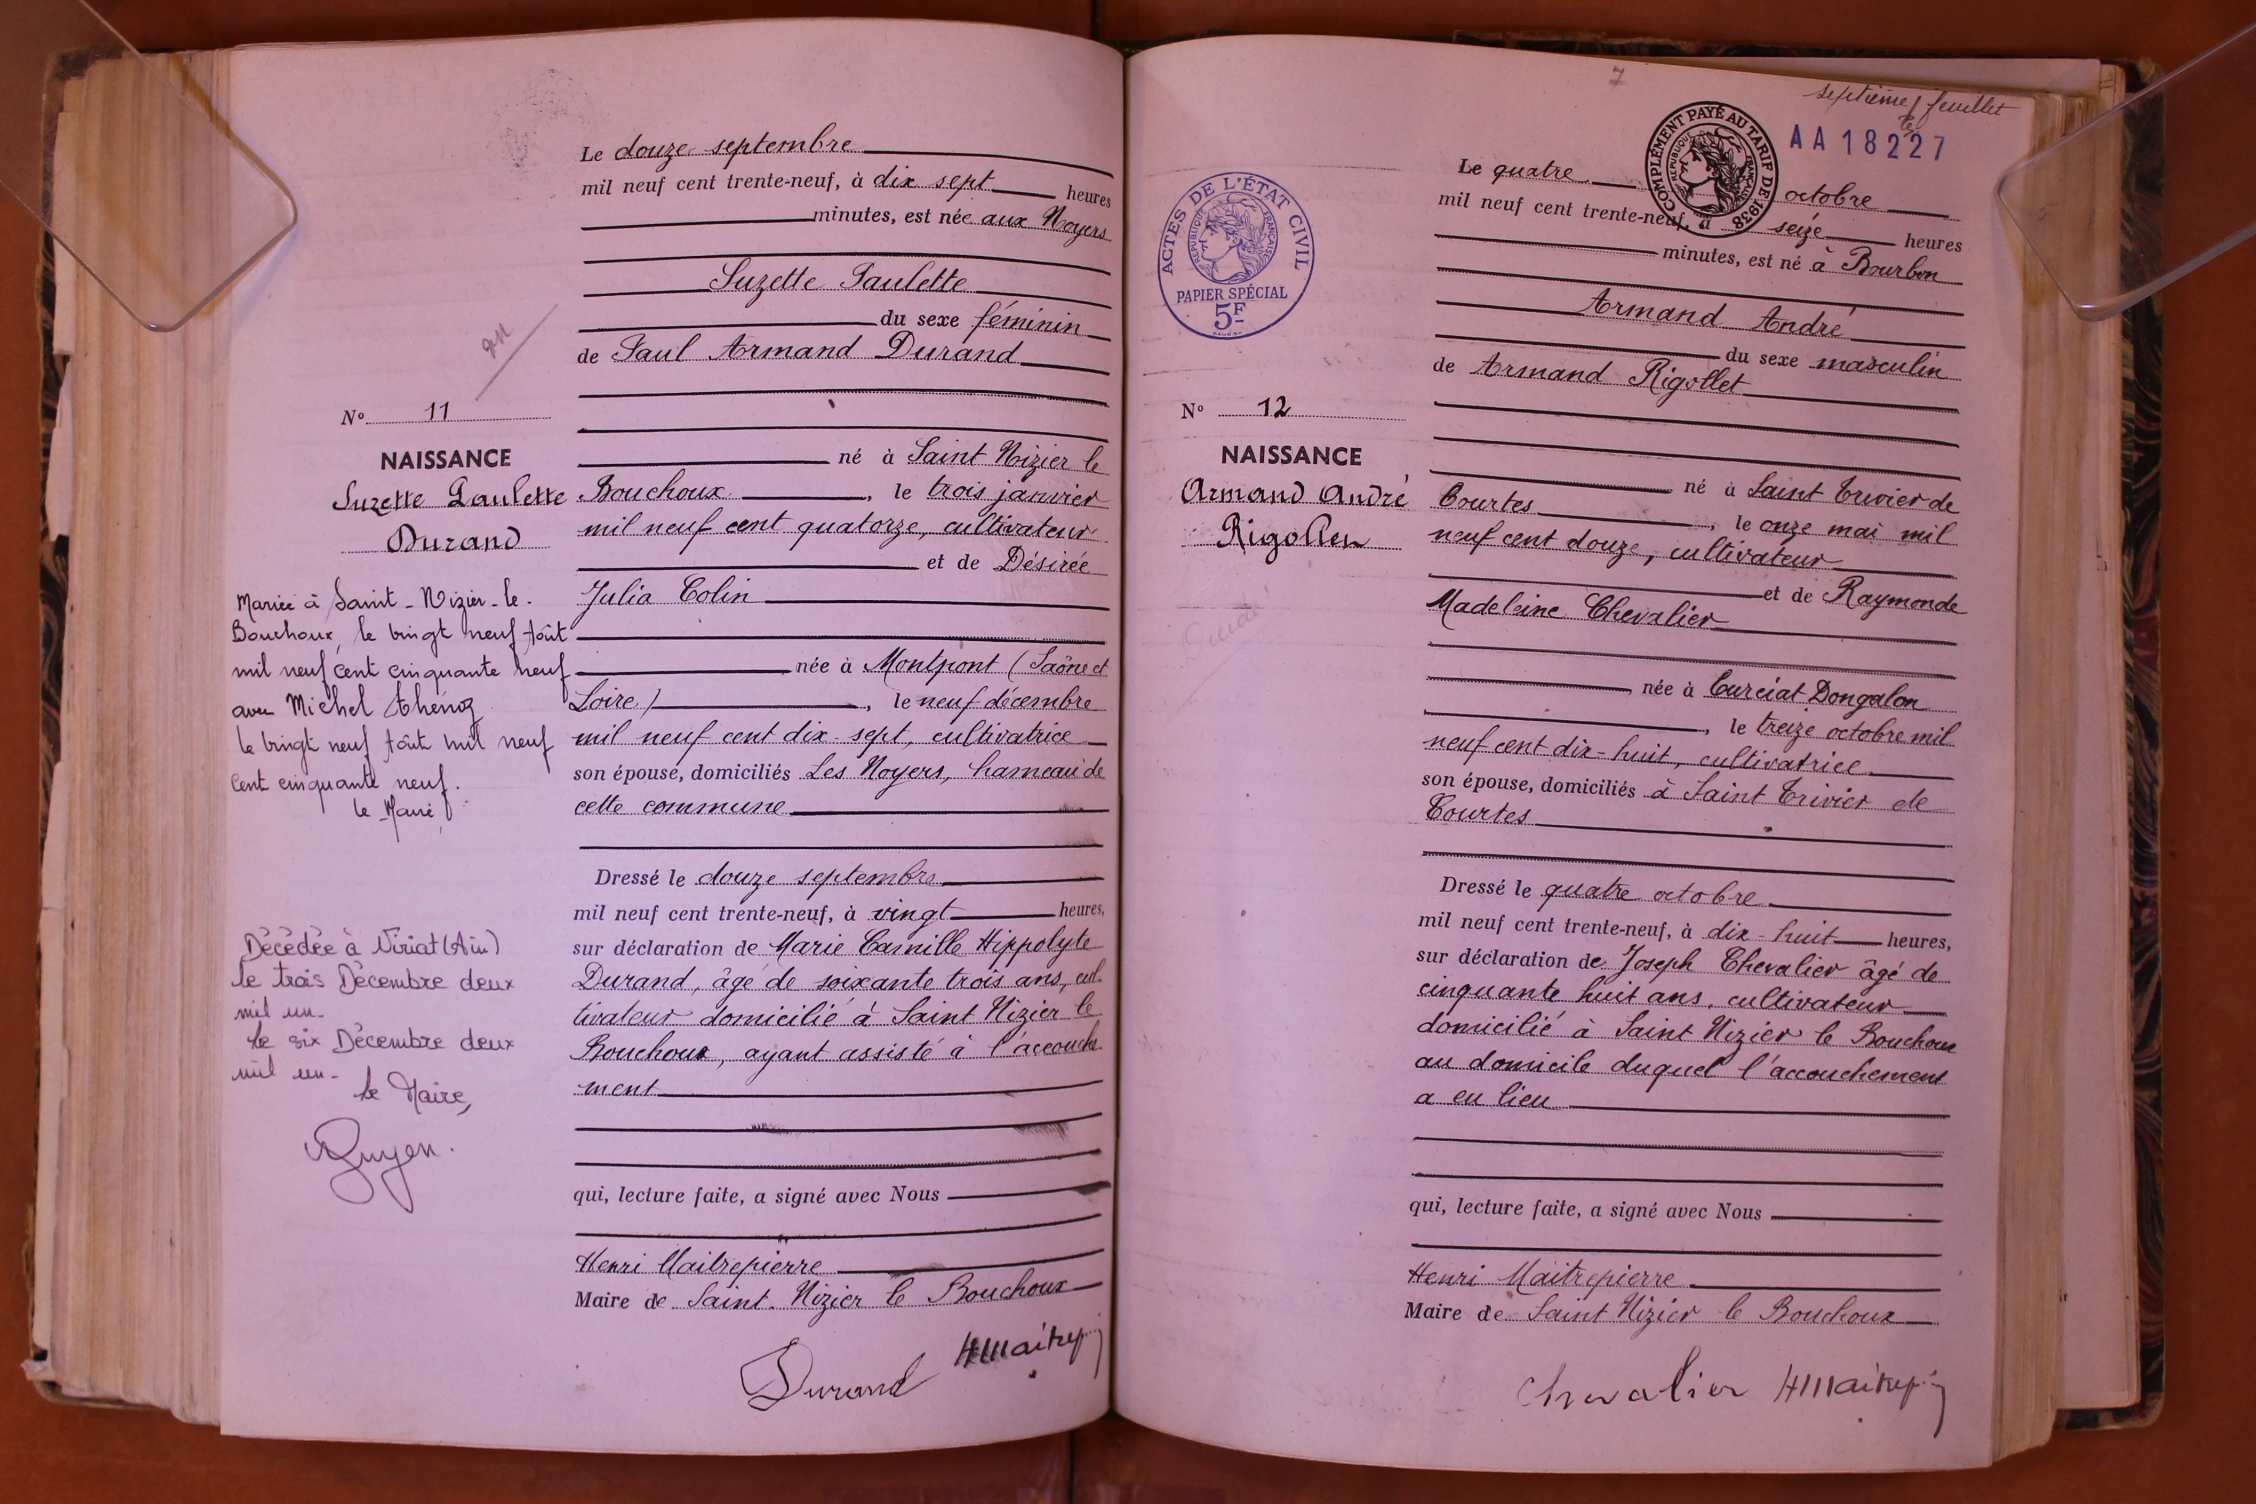 Le douze septembre
mil neuf cent trente-neuf, à dix sept heures
minutes, est née aux Noyers
Suzette Paulette
du sexe féminin
de Paul Armand Durand
né à Saint Nizier le
Bouchoux, le trois janvier
mil neuf cent quatorze, cultivateur
et de Désirée
Julia Colin
née à Montpont (Saône et
Loire), le neuf décembre
mil neuf cent dix-sept, cultivatrice
son épouse, domiciliés Les Noyers, hameau de
cette commune
Dressé le douze septembre
mil neuf cent trente-neuf, à vingt heures,
sur déclaration de Marie Camille Hippolyte
Durand, âgé de soixante trois ans, cul
tivateur domicilié à Saint Nizier le
Bouchoux, ayant assisté à l'accouche
ment
qui, lecture faite, a signé avec Nous
Henri Maitrepierre
Maire de Saint Nizier le Bouchoux
Durand
N° 11
NAISSANCE
Suzette Paulette
Durand
Mariée à Saint-Nizier-le-
Bouchoux, le vingt neuf Août
mil neuf cent cinquante neuf
avec Michel Thénoz
le vingt neuf Août mil neuf
cent cinquante neuf.
le Maire
Décédée à Viriat (Ain)
le trois Décembre deux
mil un-
le six Décembre deux
mil un-
le Maire,
7
septième feuillet
AA 18227
COMPLÉMENT PAYÉ AU TARIF DE 1938
RÉPUBLIQUE FRANÇAISE
ACTES DE L'ÉTAT CIVIL
RÉPUBLIQUE FRANÇAISE
PAPIER SPÉCIAL
5F
Le quatre octobre
mil neuf cent trente-neuf, à seize heures
minutes, est né à Bourbon
Armand André
du sexe masculin
de Armand Rigollet
né à Saint Trivier de
Courtes, le onze mai mil
neuf cent douze, cultivateur
et de Raymonde
Madeleine Chevalier
née à Curciat Dongalon
, le treize octobre mil
neuf cent dix-huit, cultivatrice
son épouse, domiciliés à Saint Trivier de
Courtes
Dressé le quatre octobre
mil neuf cent trente-neuf, à dix-huit heures,
sur déclaration de Joseph Chevalier âgé de
cinquante huit ans, cultivateur
domicilié à Saint Nizier le Bouchoux
au domicile duquel l'accouchement
a eu lieu
qui, lecture faite, a signé avec Nous
Henri Maitrepierre
Maire de Saint Nizier le Bouchoux
Chevalier
N° 12
NAISSANCE
Armand André
Rigollet